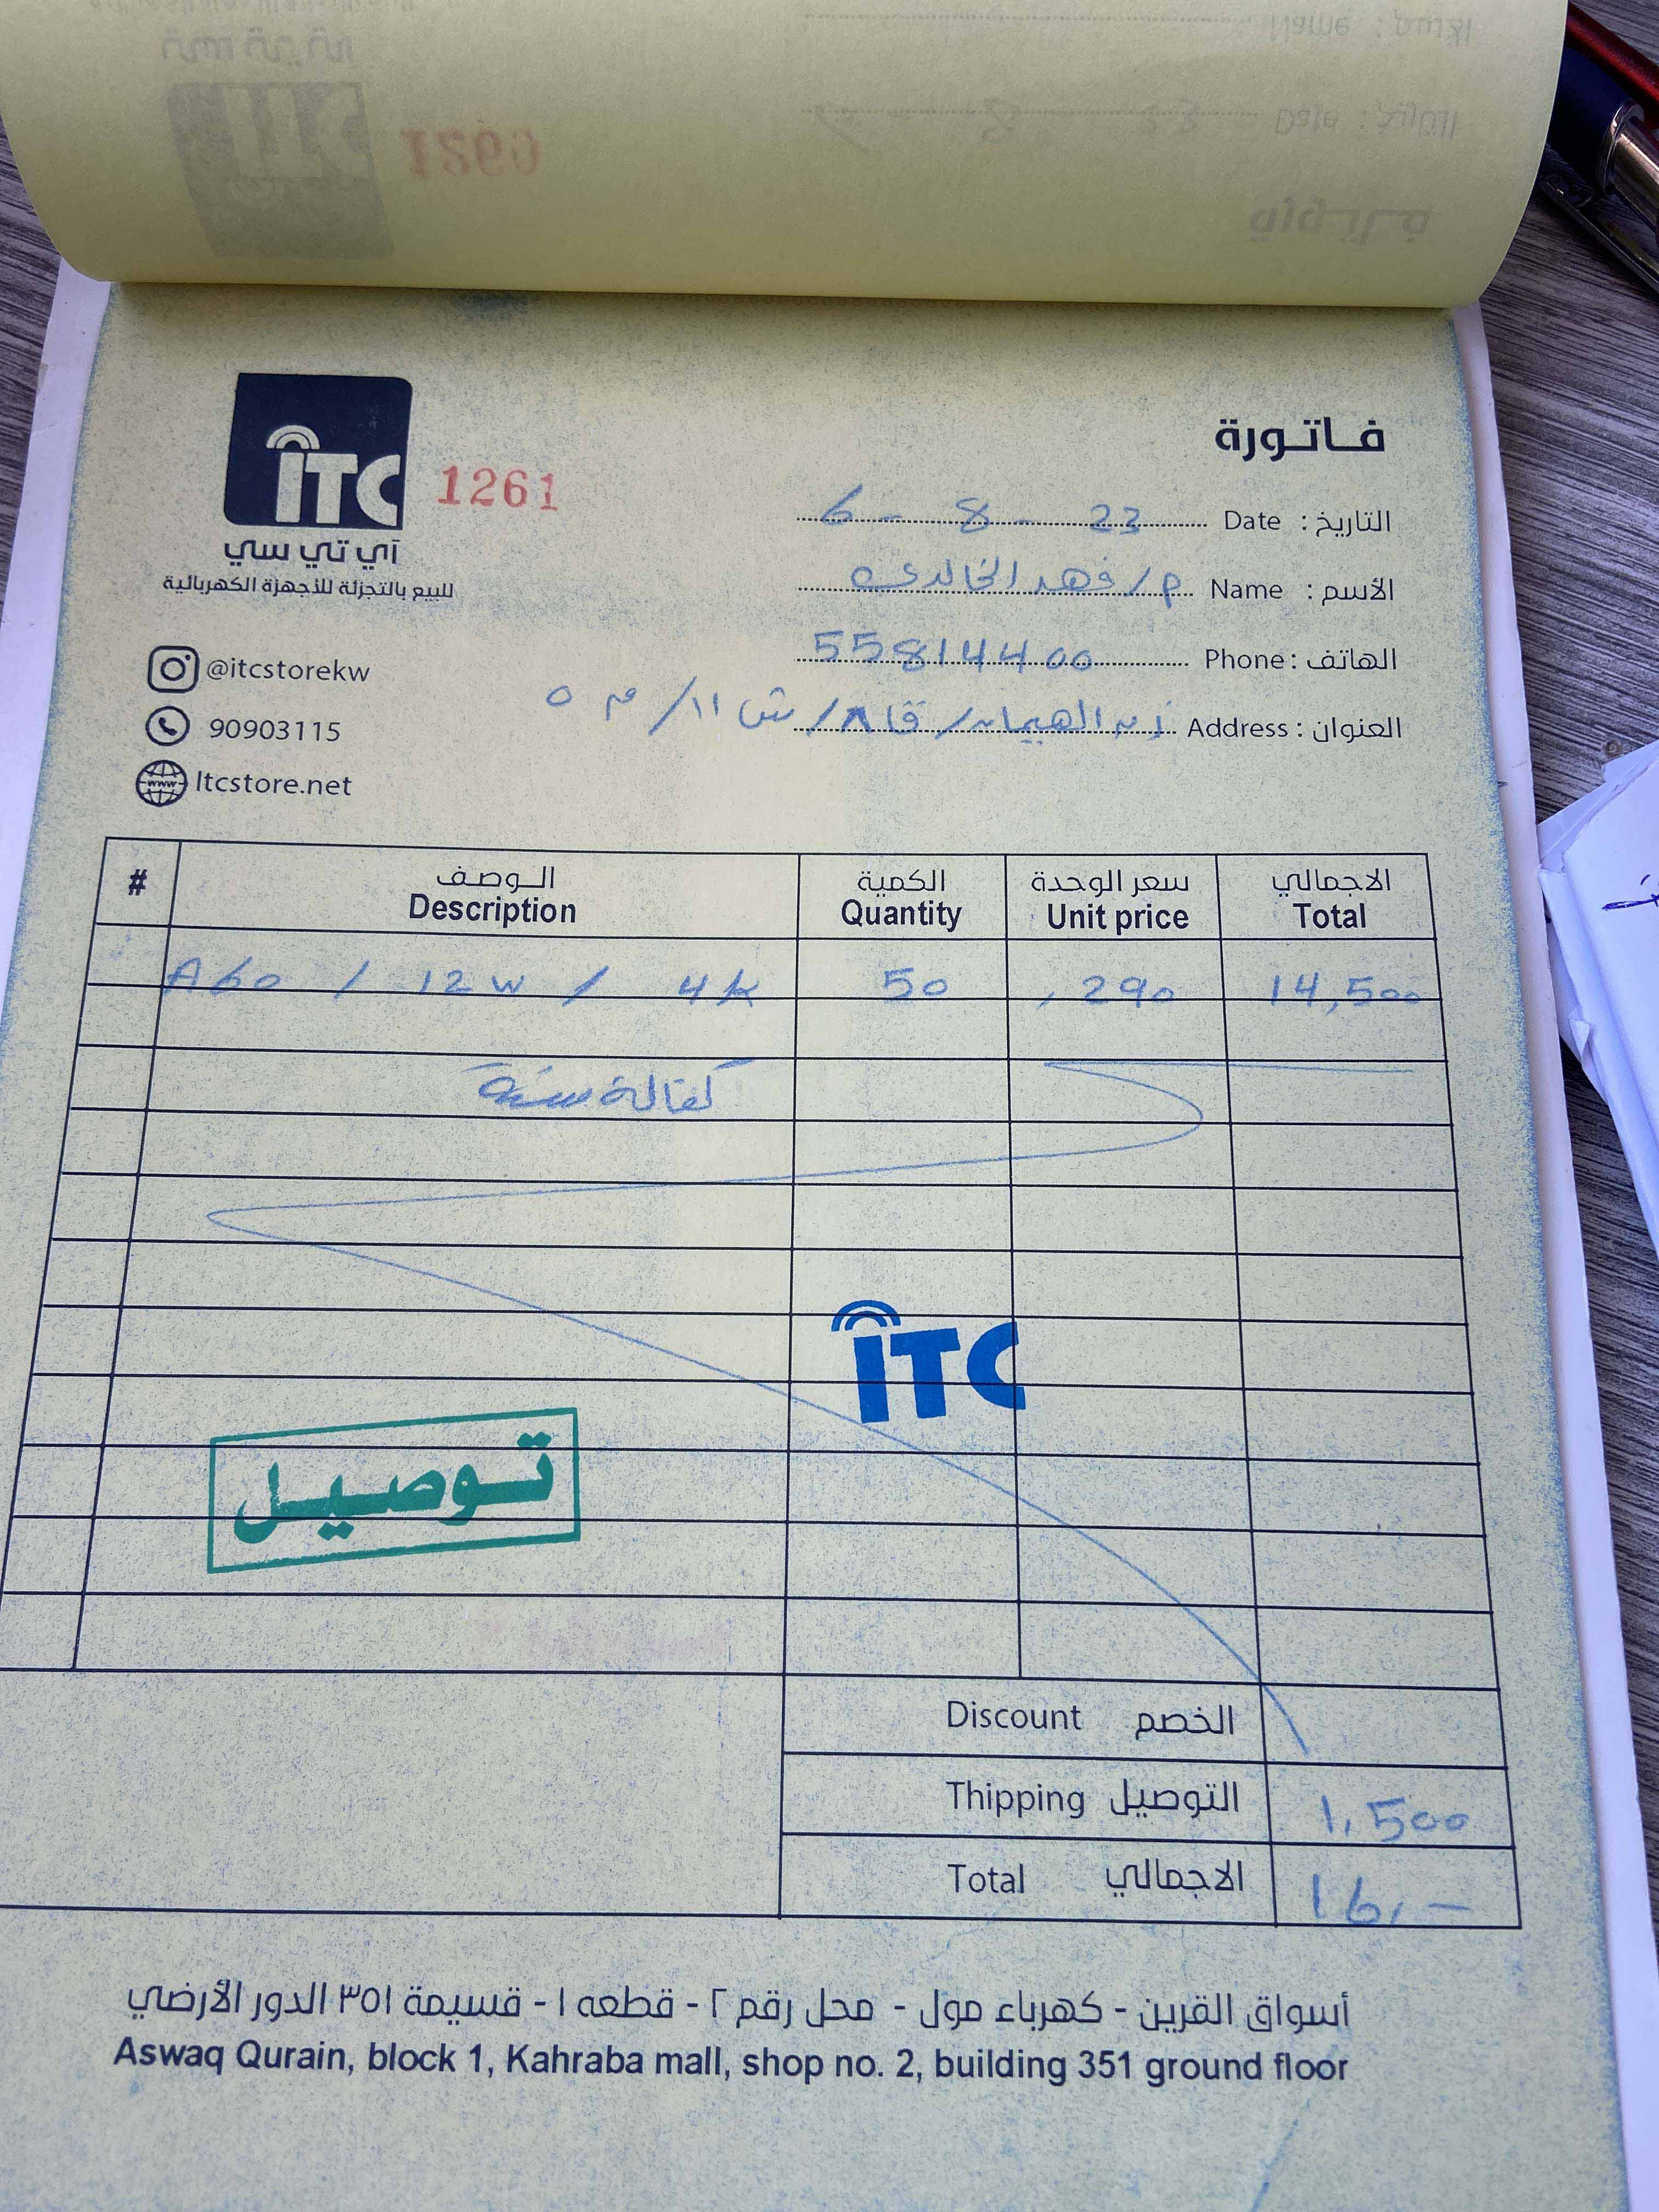 فاتورة
iTC
1261
آي تي سي
للبيع بالتجزئة للأجهزة الكهربائية
@itcstorekw
90903115
Itcstore.net
التاريخ : Date 6 - 8 - 23
الأسم : Name م/ فهد الخالدي
الهاتف : Phone 55814400
العنوان : Address / ق ٨ / ش ١١ / م ٥
# الوصف الكمية سعر الوحدة الاجمالي
Description Quantity Unit price Total
A60 / 12w / 4k 50 ,290 14,500
كفالة سنة
iTC
توصيل
Discount الخصم
Thipping التوصيل 1,500
Total الاجمالي 16,-
أسواق القرين - كهرباء مول - محل رقم ٢ - قطعه ١ - قسيمة ٣٥١ الدور الأرضي
Aswaq Qurain, block 1, Kahraba mall, shop no. 2, building 351 ground floor